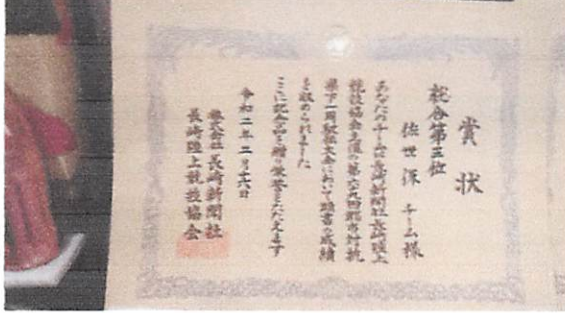 賞状
総合第三位
佐世保 チーム様
あなたのチームは長崎新聞社長崎陸上
競技協会主催の第六九回郡市対抗
県下一周駅伝大会において頭書の成績
を收められました
ここに記念品を贈り栄誉をたたえます
令和二年二月十六日
株式会社長崎新聞社
長崎陸上競技協会